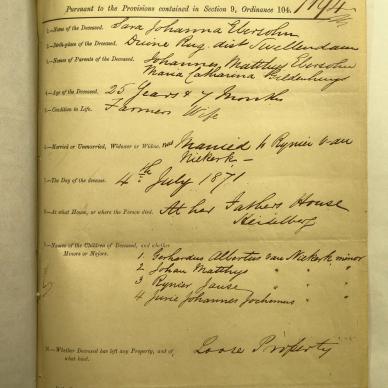 Pursuant to the Provisions contained in Section 9, Ordinance 104.
1.—Name of the Deceased. Sara Johanna Eversohn
2.—Birth-place of the Deceased. Duine Rug. dist Swellendam
3.—Names of Parents of the Deceased. Johannes Matthys Eversohn
Maria Catharina
4.—Age of the Deceased. 25 Years & 7 Months
5.—Condition in Life. Farmers Wife
6.—Married or Unmarried, Widower or Widow. Married to Rynier van
Niekerk.—
7.—The Day of the decease. 4th July 1871
8.—At what House, or where the Person died. At her Fathers House
Heidelberg
9.—Names of the Children of Deceased, and whether
Minors or Majors.
1. Gerhardus Albertus van Niekerk, minor
2 Johan Matthys " "
3 Rynier " "
4 Jurie Johannes Jochemus " "
10.—Whether Deceased has left any Property, and of
what kind.
Loose Property